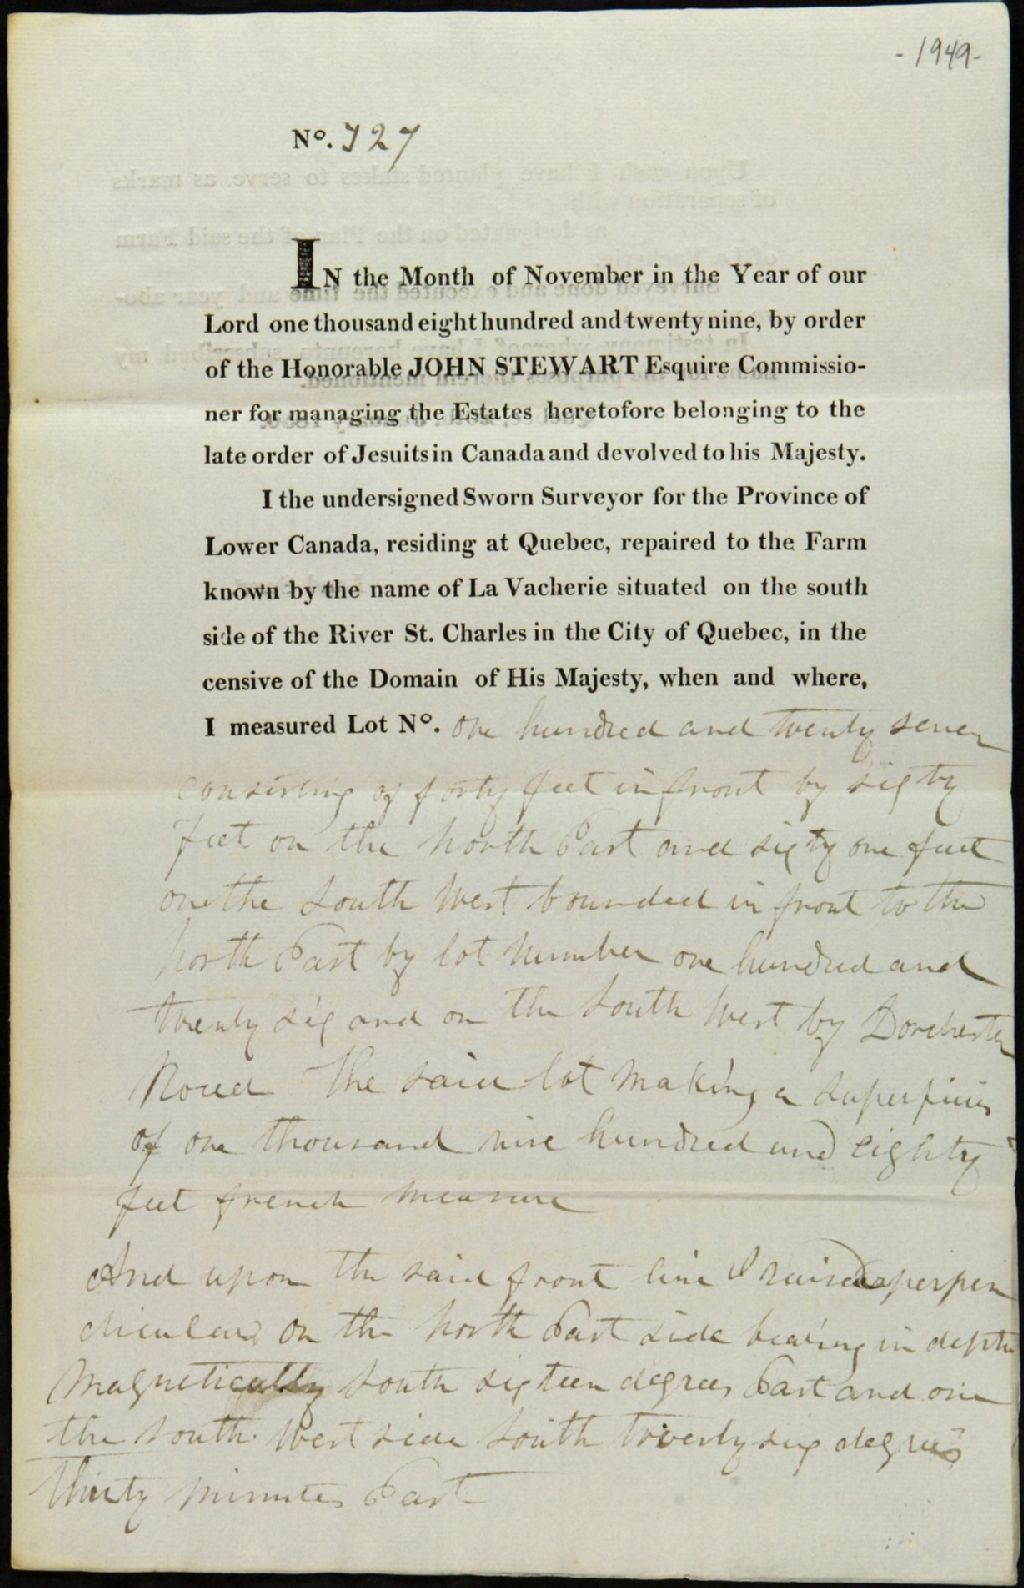 -1949-
No. 127
IN the Month of November in the Year of our
Lord one thousand eight hundred and twenty nine, by order
of the Honorable JOHN STEWART Esquire Commissio-
ner for managing the Estates heretofore belonging to the
late order of Jesuits in Canada and devolved to his Majesty.
I the undersigned Sworn Surveyor for the Province of
Lower Canada, residing at Quebec, repaired to the Farm
known by the name of La Vacherie situated on the south
side of the River St. Charles in the City of Quebec, in the
censive of the Domain of His Majesty, when and where,
I measured Lot No. one hundred and twenty seven
consisting of forty feet in front by sixty
feet on the North East and sixty one feet
on the South West bounded in front to the
North East by lot number one hundred and
twenty six and on the South West by Dorchester
Road The said lot making a superficies
of one thousand nine hundred and eighty
feet french measure
And upon the said front line I raised a perpen
diculars on the North East side bearing in depth
Magnetically South sixteen degrees East and on
the South West side South twenty six degrees
thirty minutes East